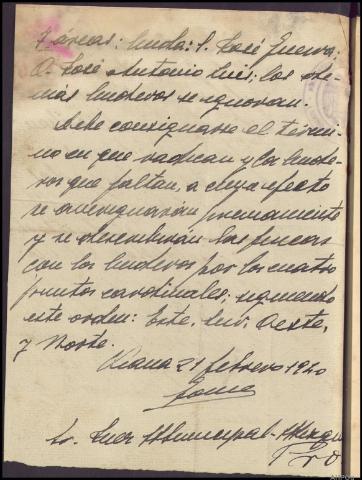 7 áreas: linda: S. José Guerra:
O. José Antonio Luis; los de-
más linderos se ignoran.
Debe consignarse el térmi-
no en que radican y los linde-
ros que faltan, a cuyo efecto
se averiguarán previamente
y se describirán las fincas
con los linderos por los cuatro
puntos cardinales, siguiendo
este orden: Este, Sur, Oeste,
y Norte.
21 febrero 1940
Sr. Juez Municipal